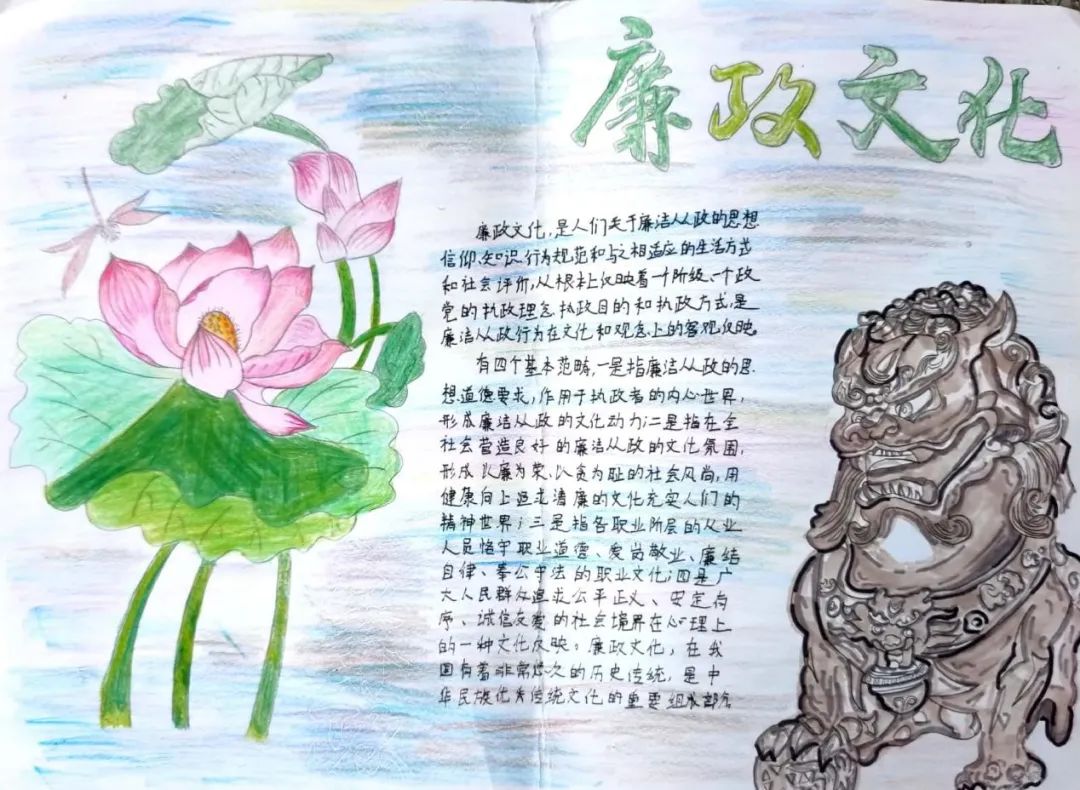 廉政文化
廉政文化,是人们关于廉洁从政的思想
信仰、知识、行为规范和与之相适应的生活方式
和社会评价,从根本上反映着一个阶级、一个政
党的执政理念、执政目的和执政方式,是
廉洁从政行为在文化和观念上的客观反映。
有四个基本范畴,一是指廉洁从政的思
想道德要求,作用于执政者的内心世界,
形成廉洁从政的文化动力;二是指在全
社会营造良好的廉洁从政的文化氛围,
形成以廉为荣、以贪为耻的社会风尚,用
健康向上追求清廉的文化充实人们的
精神世界;三是指各职业阶层的从业
人员恪守职业道德、爱岗敬业、廉结
自律、奉公守法的职业文化;四是广
大人民群众追求公平正义、安定有
序、诚信友爱的社会境界在心理上
的一种文化反映。廉政文化,在我
国有着非常悠久的历史传统,是中
华民族优秀传统文化的重要组成部分